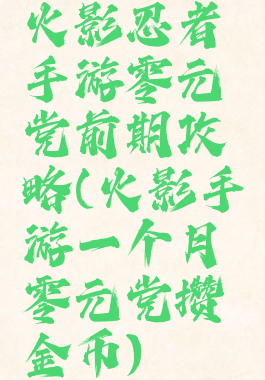 火影忍者
手游零元
党前期攻
略(火影手
游一个月
零元党攒
金币)